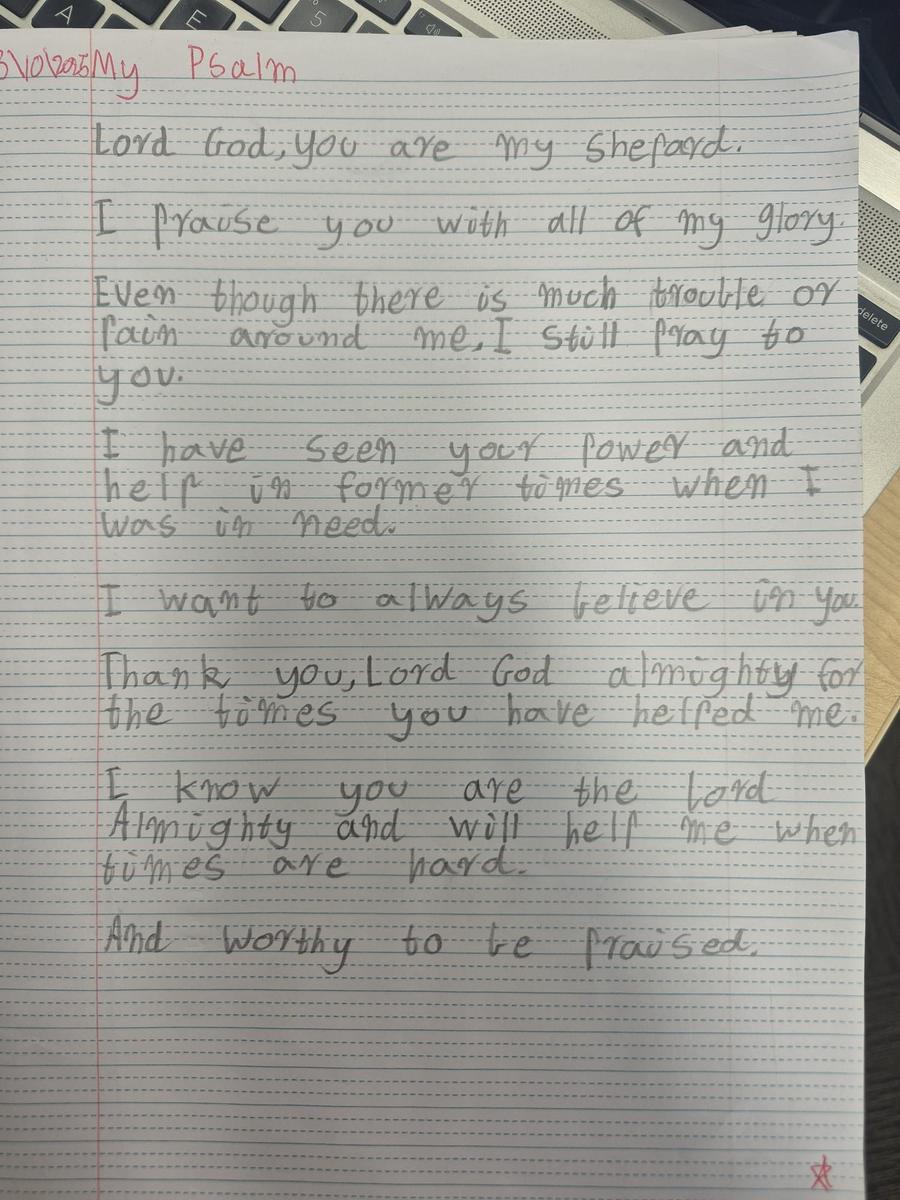 A E 5
My Psalm
Lord God, you are my shepard.
I praise you with all of my glory.
Even though there is much trouble or
pain around me, I still pray to
you.
I have seen your power and
help in former times when I
was in need.
I want to always believe in you.
Thank you, Lord God almighty for
the times you have helped me.
I know you are the Lord
Almighty and will help me when
times are hard.
And worthy to be praised.
delete